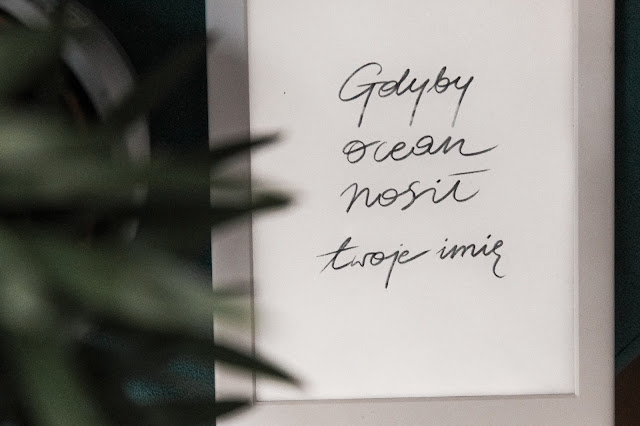 Gdyby
ocean
nosił
twoje imię